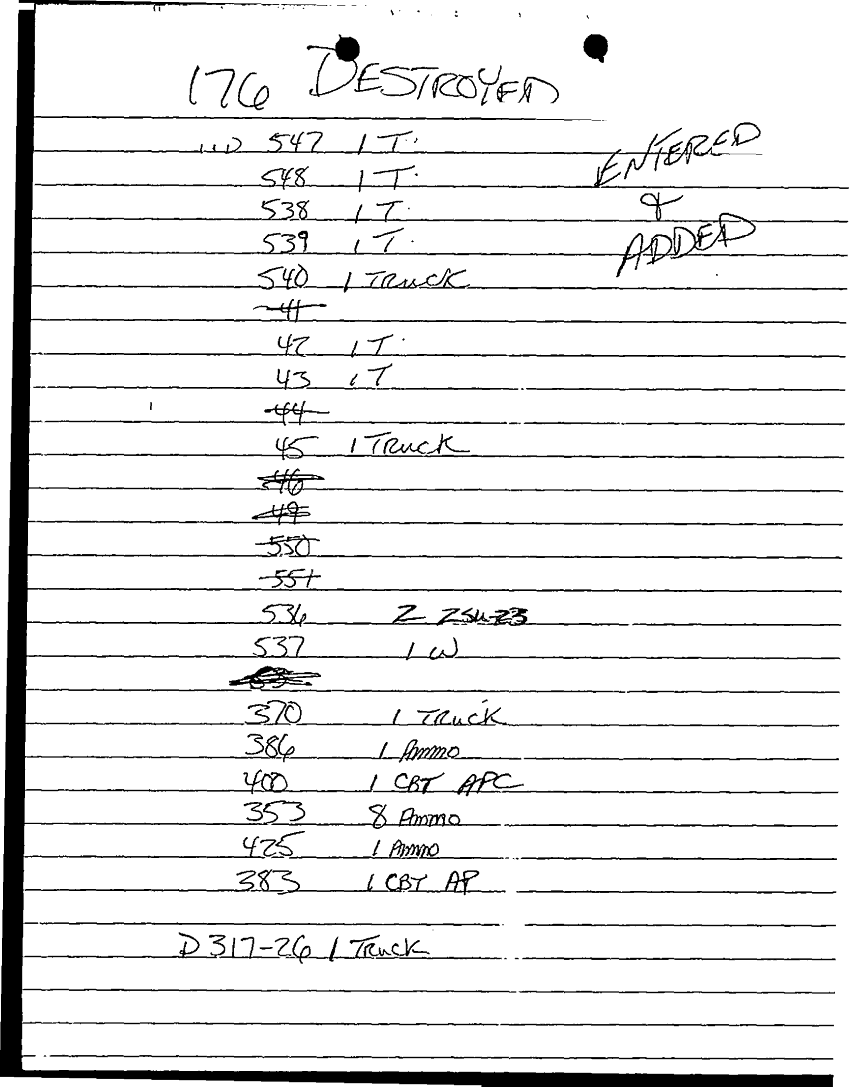 176 DESTROYED
547 1 T.
ENTERED
548 1 T.
&
538 1 T.
ADDED
539 1 T.
540 1 TRUCK
41
42 1 T.
43 1 T
44
45 1 TRUCK
46
49
550
551
536 2 ZSU-23
537 1 W
370 1 TRUCK
386 1 Ammo
400 1 CBT APC
353 8 Ammo
425 1 Ammo
383 1 CBT AP
D 317-26 1 TRUCK